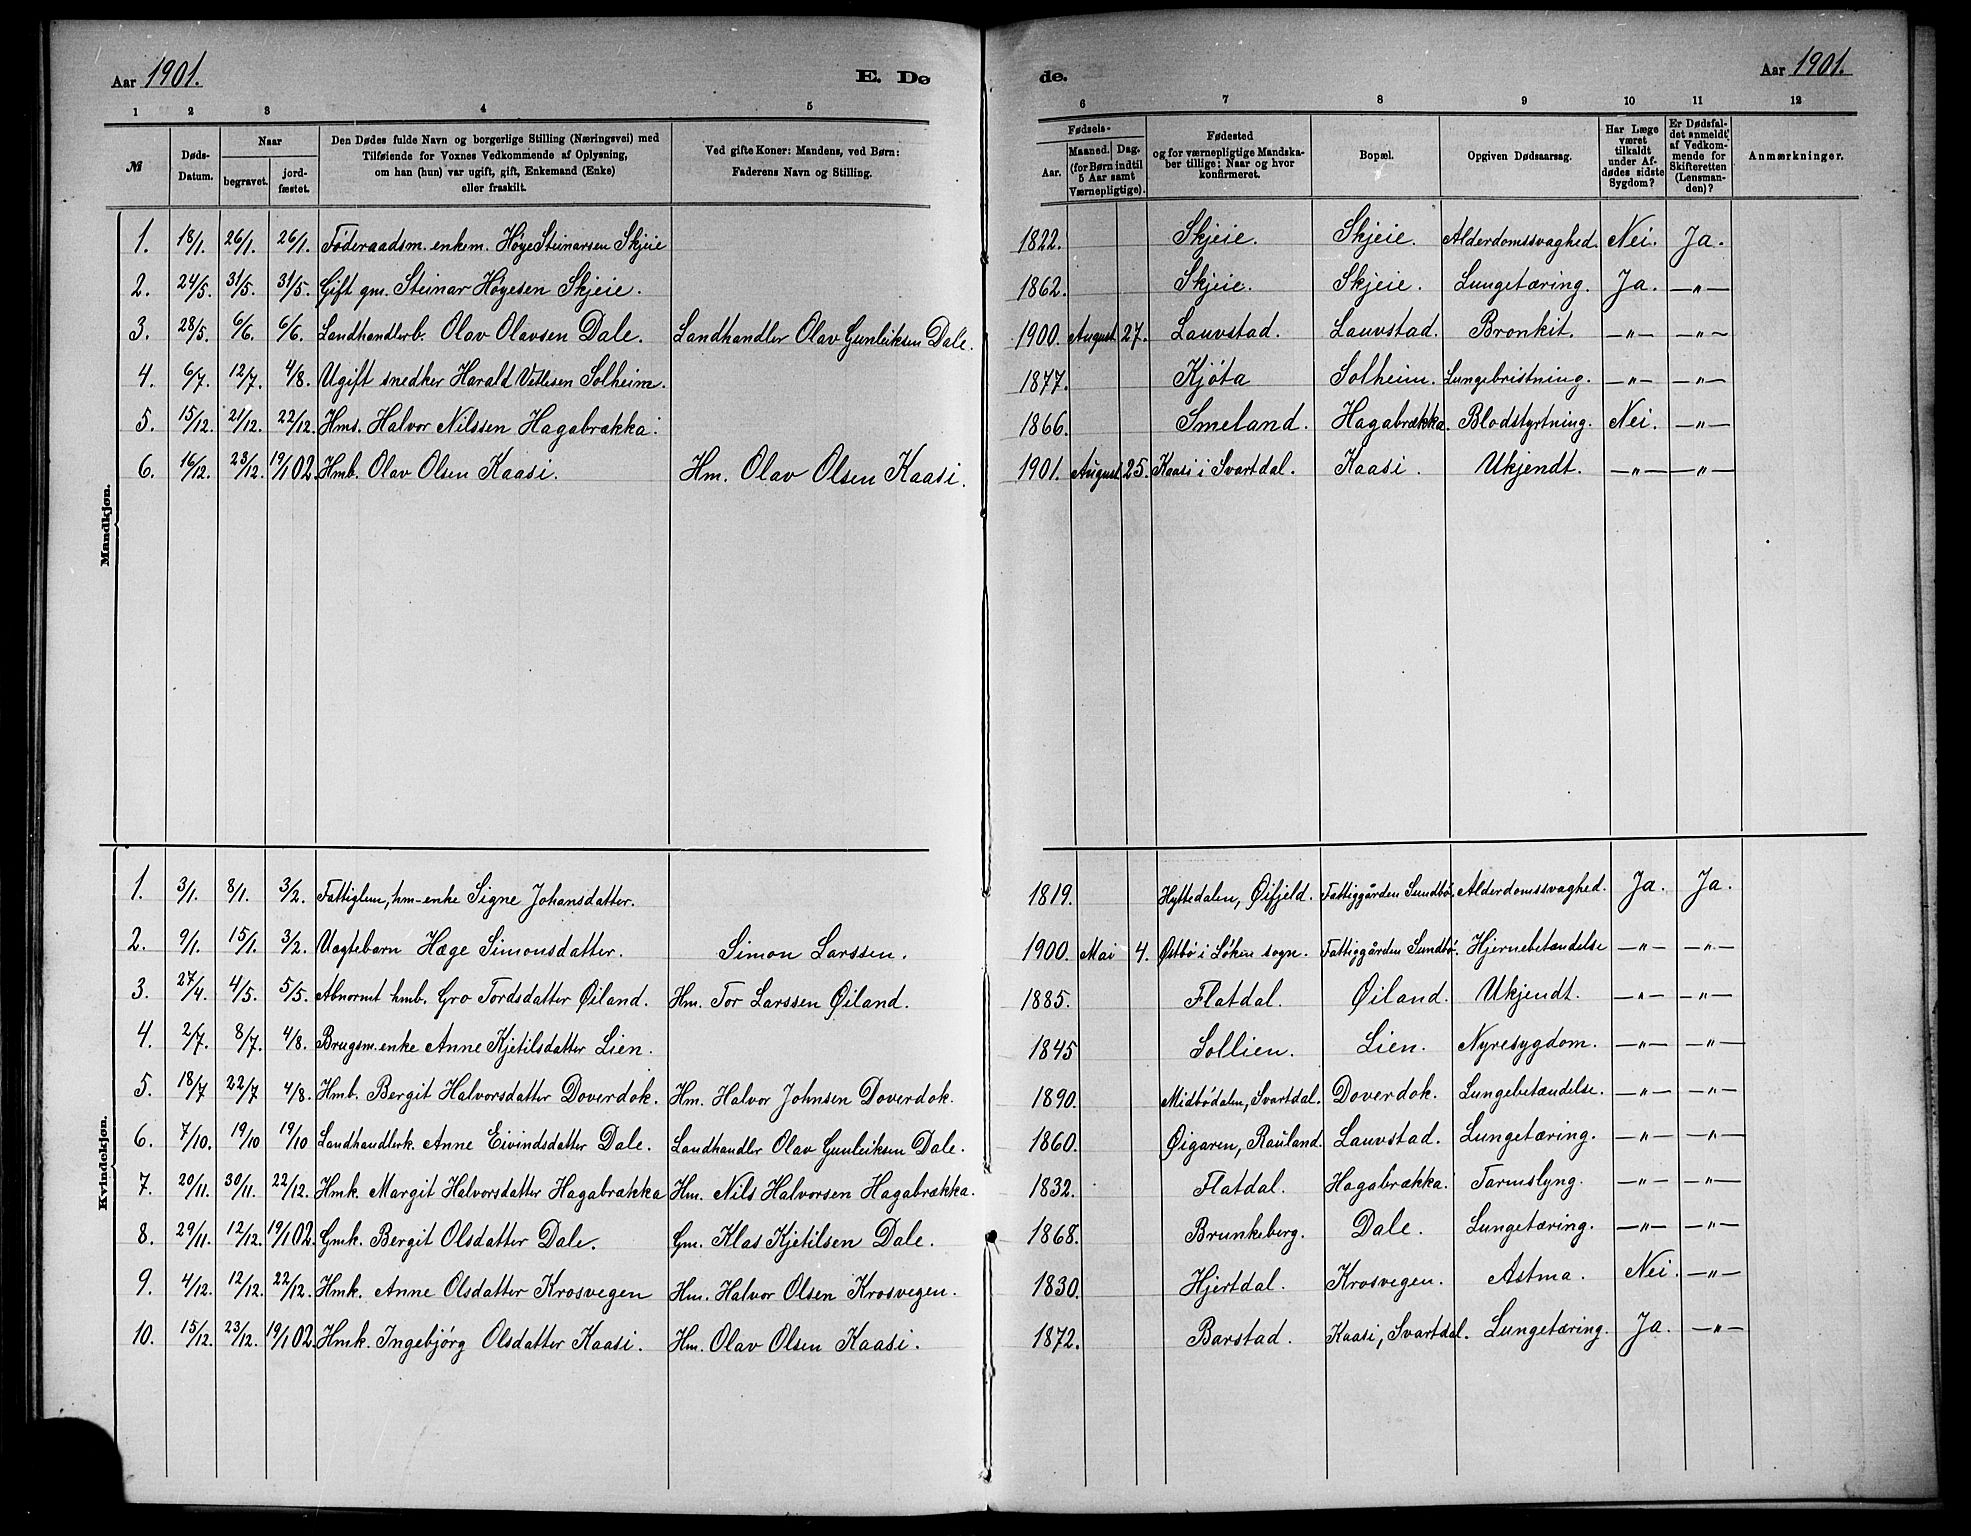 Aar 1901. E. Dø de. Aar 1901.
1 2 3 4 5 6 7 8 9 10 11 12
№ Døds-Datum. Naar begravet. jordfæstet. Den Dødes fulde Navn og borgerlige Stilling (Næringsvei) med Tilføiende for Voxnes Vedkommende af Oplysning, om han (hun) var ugift, gift, Enkemand (Enke) eller fraskilt. Ved gifte Koner: Mandens, ved Børn: Faderens Navn og Stilling. Fødsels- Aar. Maaned. Dag. (for Børn indtil 5 Aar samt Værnepligtige). Fødested og for værnepligtige Mandskaber tillige: Naar og hvor konfirmeret. Bopæl. Opgiven Dødsaarsag. Har Læge været tilkaldt under Afdødes sidste Sygdom? Er Dødsfaldet anmeldt, af Vedkommende for Skifteretten (Lensmanden)? Anmærkninger.
Mandkjøn.
1. 18/1. 26/1. 26/1. Føderaadsm. enkem. Høye Steinarsen Skjeie 1822. Skjeie. Skjeie. Alderdomssvaghed. Nei. Ja.
2. 24/5. 31/5. 31/5. Gift gm. Steinar Høyesen Skjeie. 1862. Skjeie. Skjeie. Lungetæring. Ja. —"—
3. 28/5. 6/6. 6/6. Landhandlerb. Olav Olavsen Dale. Landhandler Olav Gunleiksen Dale. 1900. August 27. Lauvstad. Lauvstad. Bronkit. —"— —"—
4. 6/7. 12/7. 4/8. Ugift snedker Harald Vetlesen Solheim. 1877. Kjøta Solheim. Lungebristning. —"— —"—
5. 15/12. 21/12. 22/12. Hms. Halvor Nilssen Hagabrækka. 1866. Smeland. Hagabrækka. Blodstyrtning. Nei. —"—
6. 16/12. 23/12. 19/1 02. Hmb. Olav Olsen Kaasi. Hm. Olav Olsen Kaasi. 1901. August 25. Kaasi i Svartdal. Kaasi. Ukjendt. —"— —"—
Kvindekjøn.
1. 3/1. 8/1. 3/2. Fattiglem, hm-enke Signe Johansdatter. 1819. Hyttedalen, Øifjeld. Fattiggården Sundbø. Alderdomssvaghed. Ja. Ja.
2. 9/1. 15/1. 3/2. Uægtebarn Hæge Simonsdatter. Simon Larssen. 1900. Mai 4. Østbø i Løken sogn. Fattiggården Sundbø. Hjernebetændelse —"— —"—
3. 27/4. 4/5. 5/5. Abnormt hmb. Gro Tordsdatter Øiland. Hm. Tor Larssen Øiland. 1885. Flatdal. Øiland. Ukjendt. —"— —"—
4. 2/7. 8/7. 4/8. Brugsm. enke Anne Kjetilsdatter Lien. 1845 Sollien. Lien. Nyresygdom. —"— —"—
5. 18/7 22/7 4/8. Hmb. Bergit Halvorsdatter Doverdok. Hm. Halvor Johnsen Doverdok. 1890. Midbødalen, Svartdal. Doverdok. Lungebetændelse. —"— —"—
6. 7/10. 19/10 19/10 Landhandlerk. Anne Eivindsdatter Dale. Landhandler Olav Gunleiksen Dale. 1860. Øigaren, Rauland. Lauvstad. Lungetæring. —"— —"—
7. 20/11. 30/11. 22/12. Hmk. Margit Halvorsdatter Hagabrækka Hm. Nils Halvorsen Hagabrækka. 1832. Flatdal. Hagabrækka. Tarmslyng. —"— —"—
8. 29/11. 12/12. 19/1 02. Gmk. Bergit Olsdatter Dale. Gm. Klas Kjetilsen Dale. 1868. Brunkeberg. Dale. Lungetæring. —"— —"—
9. 4/12. 12/12. 22/12. Hmk. Anne Olsdatter Krosvegen Hm. Halvor Olsen Krosvegen. 1830. Hjertdal. Krosvegen. Astma. Nei. —"—
10. 15/12. 23/12. 19/1 02. Hmk. Ingebjørg Olsdatter Kaasi. Hm. Olav Olsen Kaasi. 1872. Barstad. Kaasi, Svartdal. Lungetæring. Ja. —"—